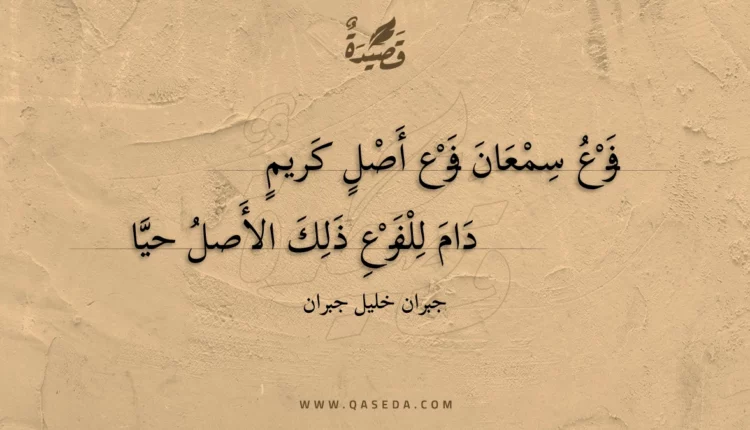 قَصِيْدَةٌ
فَرْعُ سِمْعَانَ فَرْع أَصْلٍ كَريمٍ
دَامَ لِلْفَرْعِ ذَلِكَ الأَصلُ حيَّا
جبران خليل جبران
WWW.QASEDA.COM